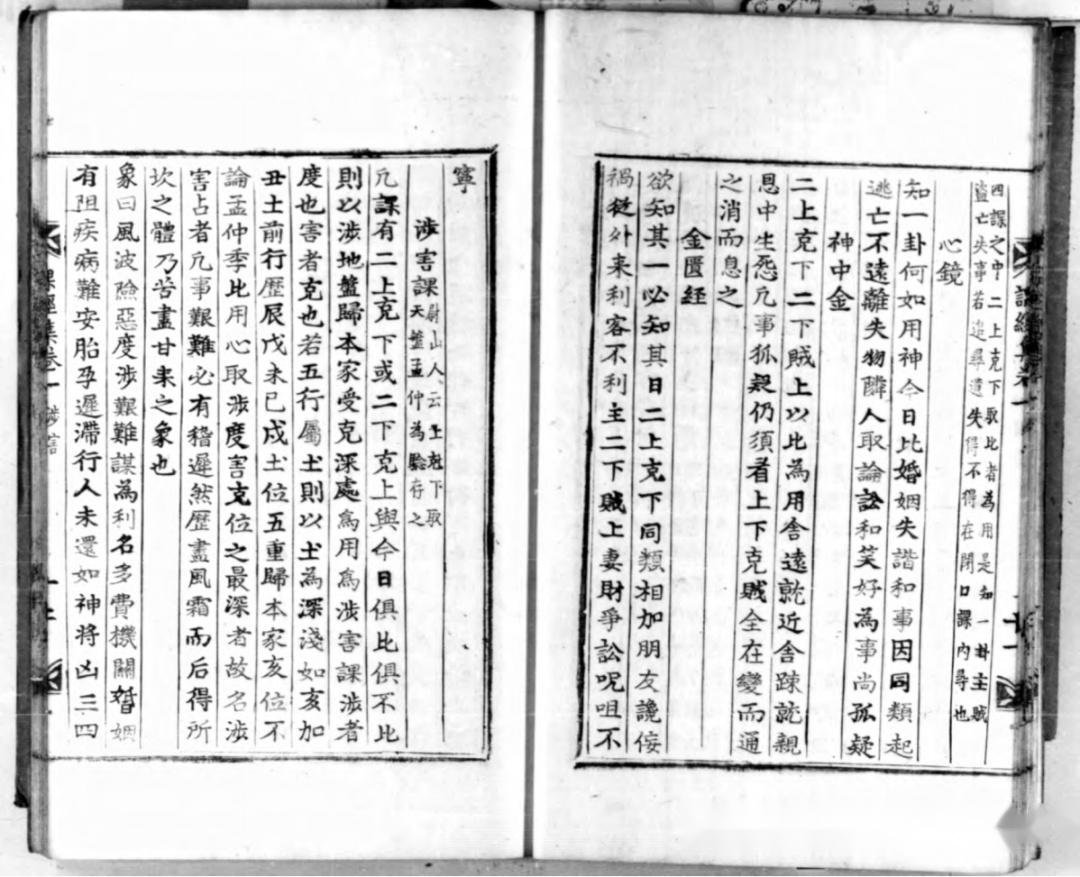 四課之中二上克下取比者為用是知一卦主賊
盜亡失事若追尋遺失得不得在閉口課內尋也
心鏡
知一卦何如用神今日比婚姻失諧和事因同類起
逃亡不遠離失物隣人取論訟和笑好為事尚孤疑
神中金
二上克下二下賊上以比為用舍遠就近舍踈就親
恩中生恶凡事狐疑仍須看上下克賊全在變而通
之消而息之
金匱經
欲知其一必知其日二上克下同類相加朋友讒侫
禍從外来利客不利主二下賊上妻財爭訟呪咀不
寧
涉害課
尉山人云上尅下取
天盤孟仲為騐存之
凡課有二上克下或二下克上與今日俱比俱不比
則以涉地盤歸本家受克深處為用為涉害課涉者
度也害者克也若五行屬土則以土為深淺如亥加
丑土前行歷辰戊未已戌土位五重歸本家亥位不
論孟仲季比用心取涉度害克位之最深者故名涉
害占者凡事艱難必有稽遲然歷盡風霜而后得所
坎之體乃苦盡甘来之象也
象曰風波險惡度涉艱難謀為利名多費機關婚姻
有阻疾病難安胎孕遲滯行人未還如神將凶三四
課經集卷一 涉害